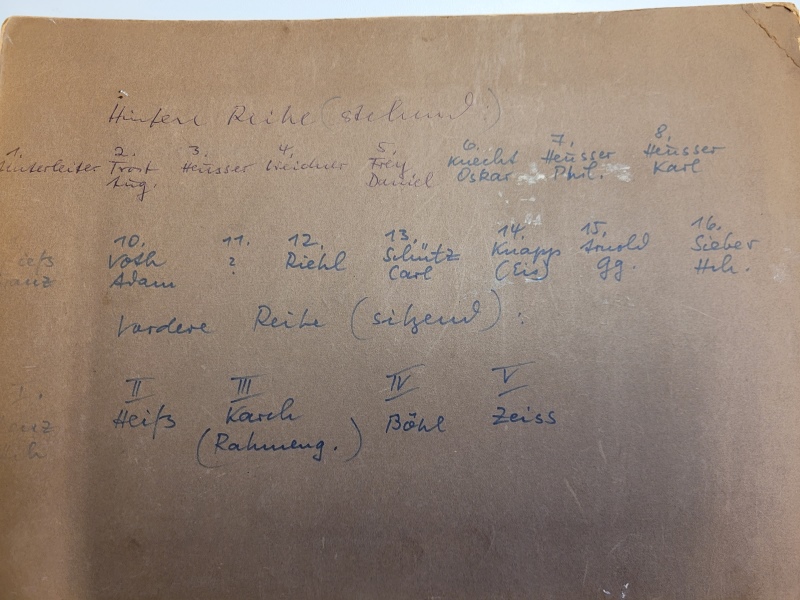 Hintere Reihe (stehend:)
1. 2. 3. 4. 5. 6. 7. 8.
Hinterleiter Trost Heusser Weicher Frey Knecht Heusser Heusser
Aug. Daniel Oskar Phil. Karl
10. 11. 12. 13. 14. 15. 16.
Voth ? Riehl Schütz Knapp Arnold Sieber
Adam Carl (Eis) Gg. Hch.
Vordere Reihe (sitzend):
II III IV V
Heiß Karch Böhl Zeiss
(Rahmeng.)